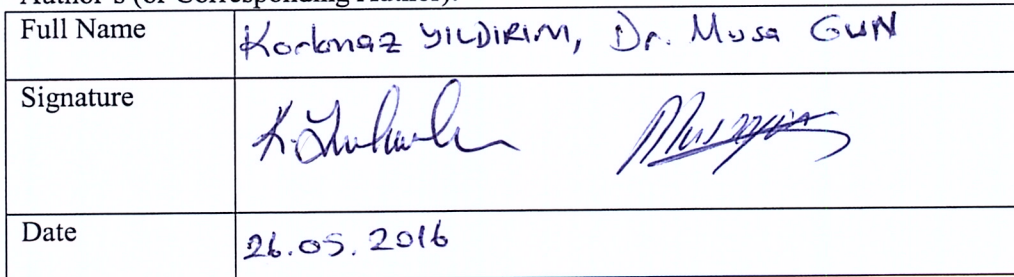 Author's (or Corresponding Author):
Full Name
Korkmaz YILDIRIM, Dr. Musa GUN
Signature
Date
26.05.2016